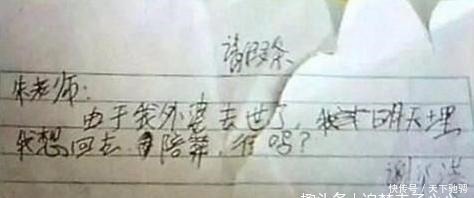 请假条
朱老师:
由于我外婆去世了,我 明天埋
我想回去 陪葬,行吗?
谢
快传号 / 天下驰骋